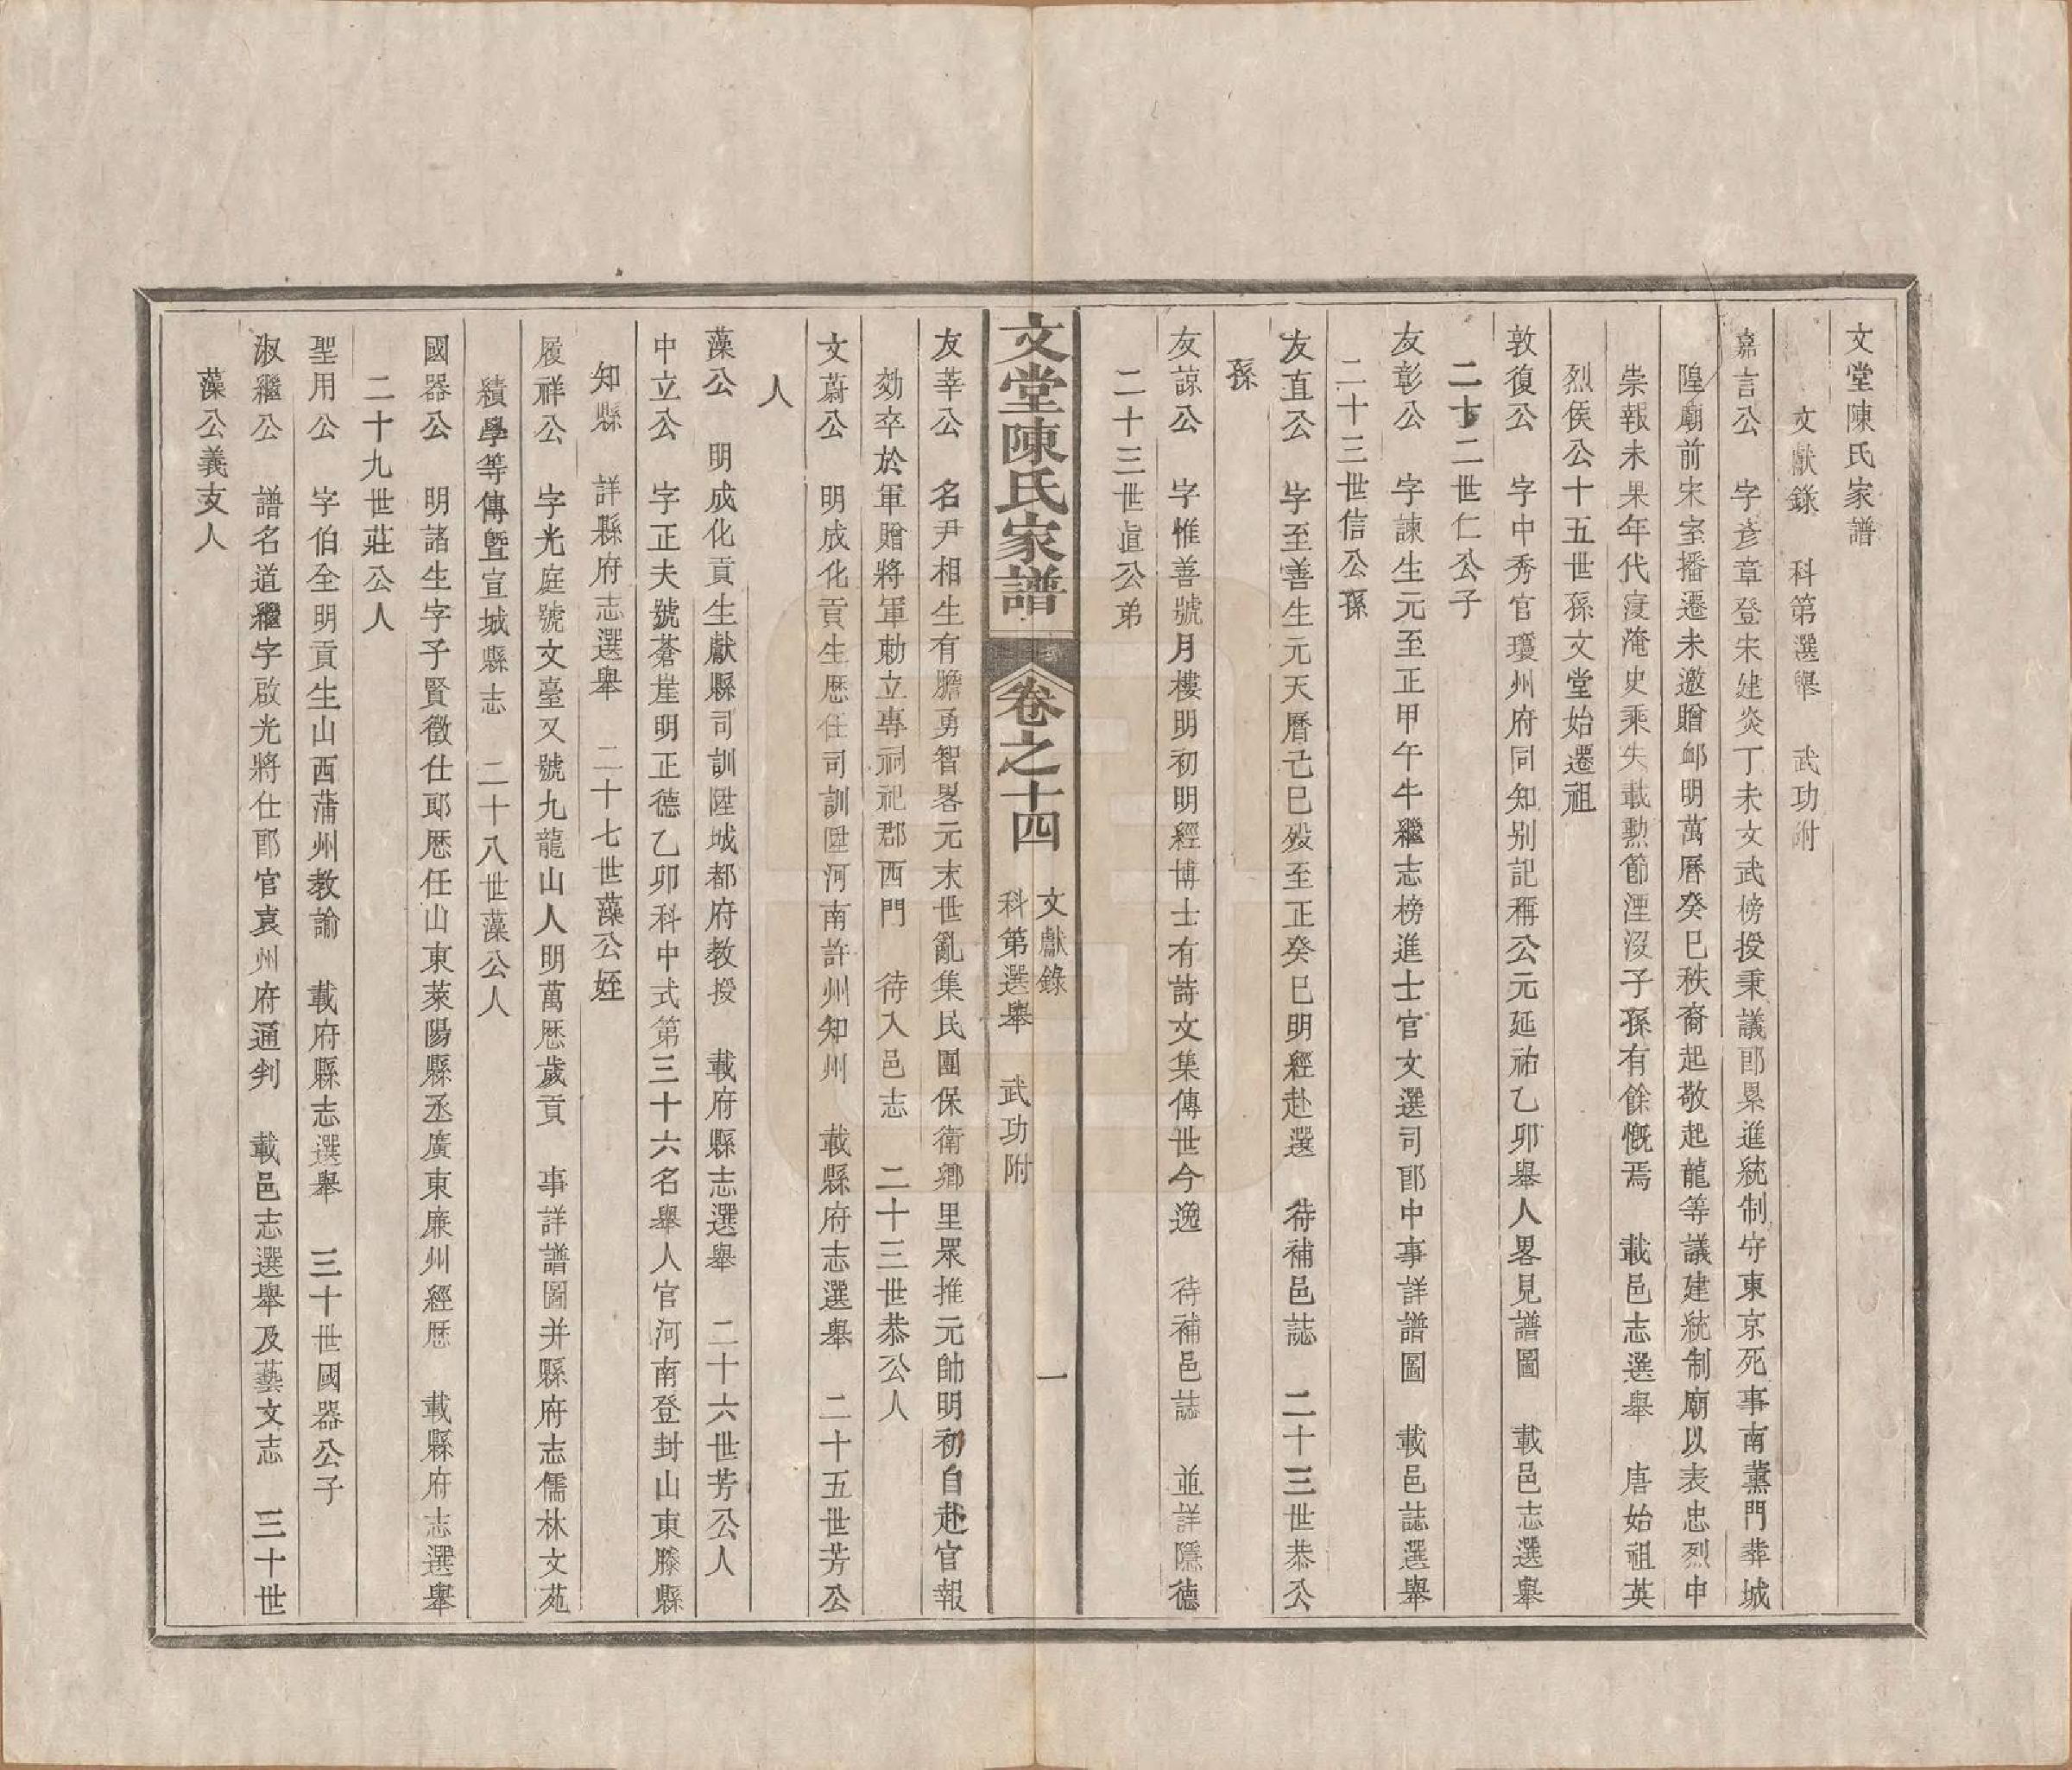 文堂陳氏家譜
文獻錄　科第選舉　武功附
嘉言公　字彥章登宋建炎丁未文武榜授秉議郎累進統制守東京死事南薰門葬城
隍廟前宋室播遷未邀贈卹明萬曆癸巳秩裔起敬起龍等議建統制廟以表忠烈申
崇報未果年代寖淹史乘失載勲節湮沒子孫有餘慨焉　載邑志選舉　唐始祖英
烈侯公十五世孫文堂始遷祖
敦復公　字中秀官瓊州府同知别記稱公元延祐乙卯舉人畧見譜圖　載邑志選舉
二十二世仁公子
友彰公　字諫生元至正甲午牛繼志榜進士官文選司郎中事詳譜圖　載邑誌選舉
二十三世信公孫
友直公　字至善生元天曆己巳歿至正癸巳明經赴選　待補邑誌　二十三世恭公
孫
友諒公　字惟善號月樓明初明經博士有詩文集傳世今逸　待補邑誌　並詳隱德
二十三世眞公弟
文堂陳氏家譜　卷之十四　文獻錄　科第選舉　武功附　一
友莘公　名尹相生有膽勇智畧元末世亂集民團保衛鄉里眾推元帥明初自赴官報
効卒於軍贈將軍勅立專祠祀郡西門　待入邑志　二十三世恭公人
文蔚公　明成化貢生歷任司訓陞河南許州知州　載縣府志選舉　二十五世芳公
人
藻公　明成化貢生獻縣司訓陞城都府教授　載府縣志選舉　二十六世芳公人
中立公　字正夫號蒼崖明正德乙卯科中式第三十六名舉人官河南登封山東滕縣
知縣　詳縣府志選舉　二十七世藻公姪
履祥公　字光庭號文臺又號九龍山人明萬歷歲貢　事詳譜圖并縣府志儒林文苑
績學等傳曁宣城縣志　二十八世藻公人
國器公　明諸生字子賢徵仕郎歷任山東萊陽縣丞廣東廉州經歷　載縣府志選舉
二十九世莊公人
聖用公　字伯全明貢生山西蒲州教諭　載府縣志選舉　三十世國器公子
淑繼公　譜名道繼字啟光將仕郎官袁州府通判　載邑志選舉及藝文志　三十世
藻公義支人